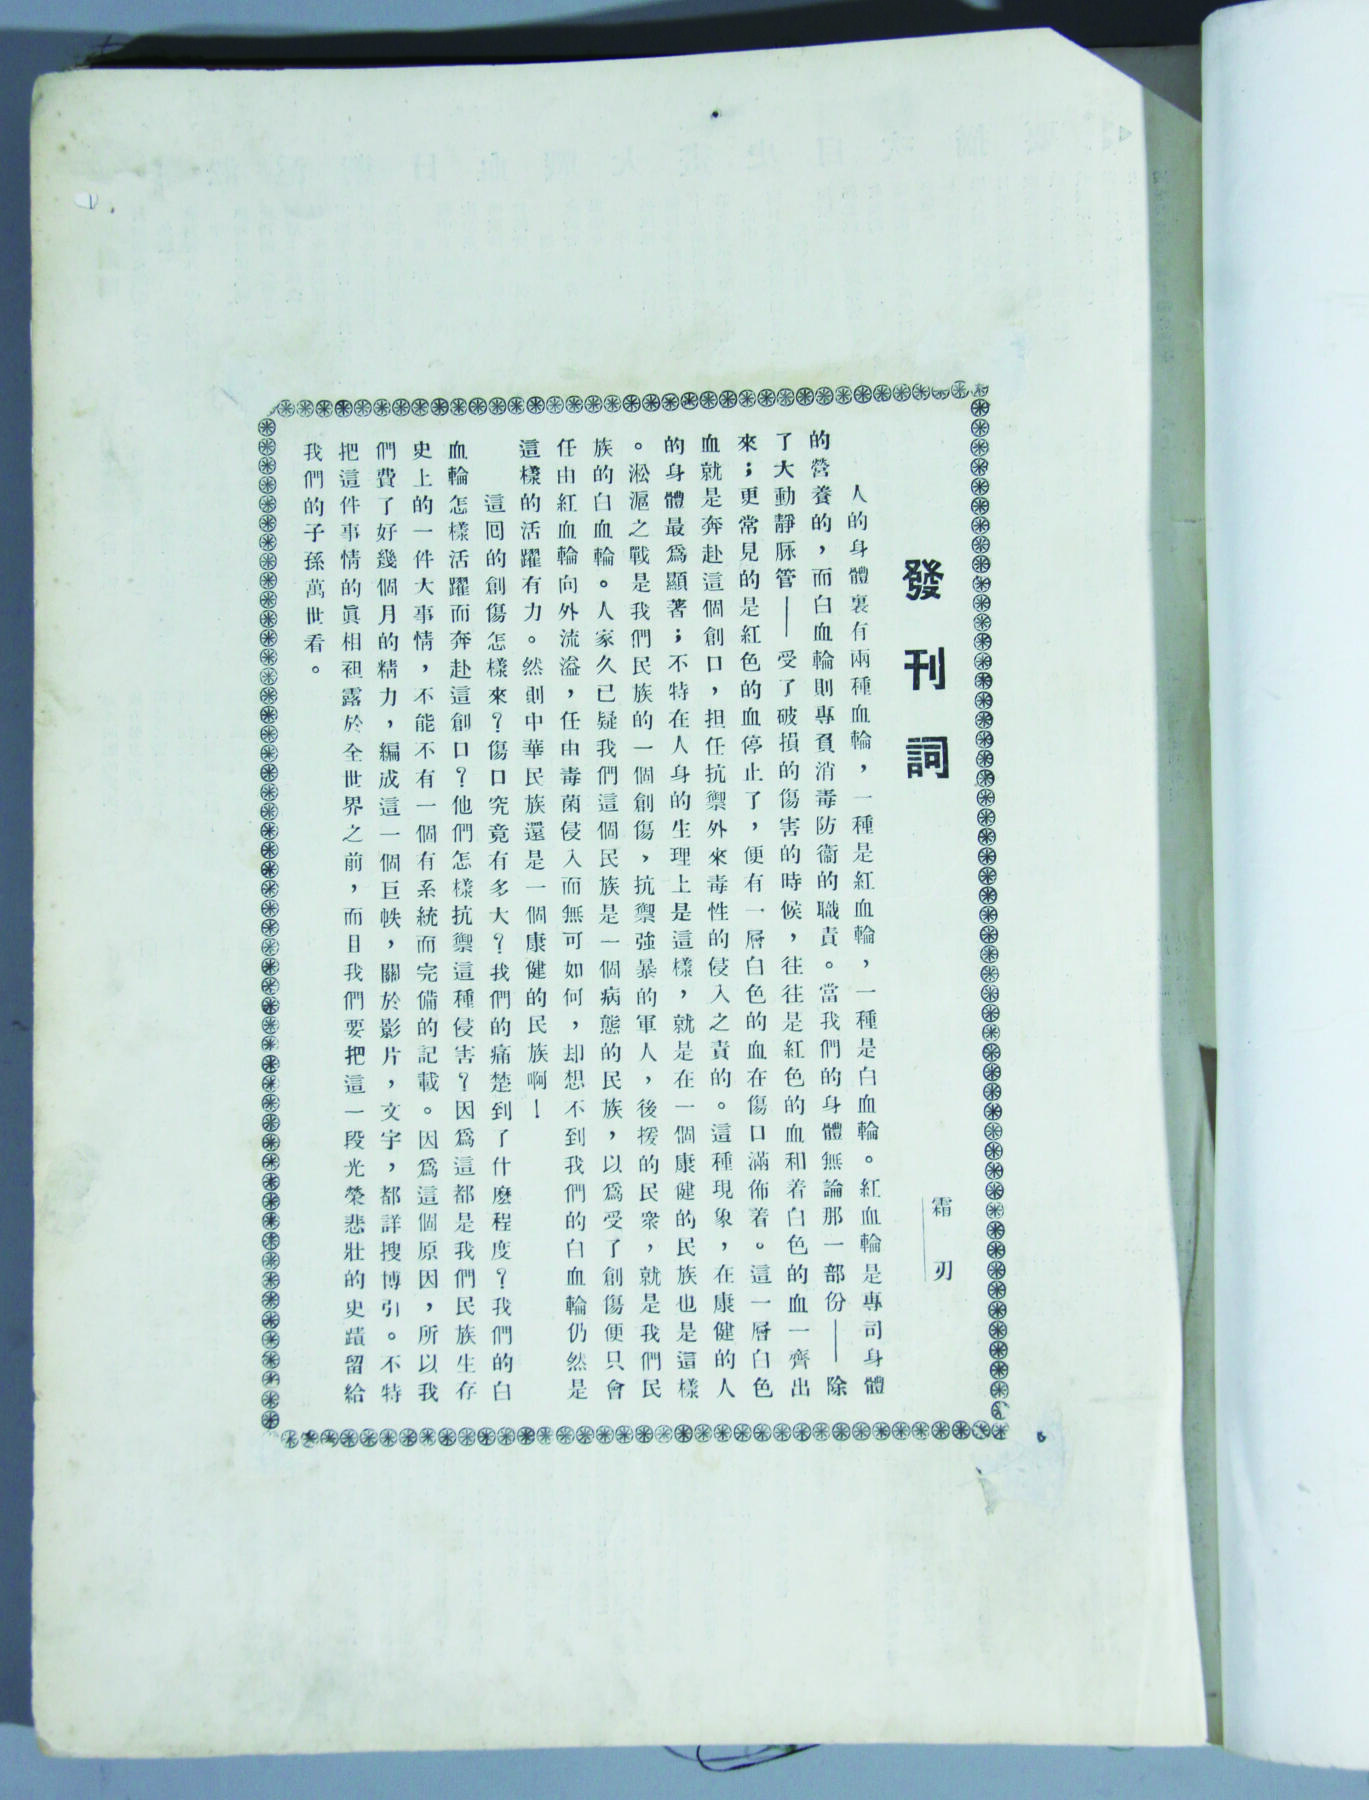 發刊詞
霜刃
人的身體裏有兩種血輪，一種是紅血輪，一種是白血輪。紅血輪是專司身體
的營養的，而白血輪則專負消毒防衞的職責。當我們的身體無論那一部份——除
了大動靜脈管——受了破損的傷害的時候，往往是紅色的血和着白色的血一齊出
來；更常見的是紅色的血停止了，便有一層白色的血在傷口滿佈着。這一層白色
血就是奔赴這個創口，担任抗禦外來毒性的侵入之責的。這種現象，在康健的人
的身體最爲顯著；不特在人身的生理上是這樣，就是在一個康健的民族也是這樣
。淞滬之戰是我們民族的一個創傷，抗禦強暴的軍人，後援的民衆，就是我們民
族的白血輪。人家久已疑我們這個民族是一個病態的民族，以爲受了創傷便只會
任由紅血輪向外流溢，任由毒菌侵入而無可如何，却想不到我們的白血輪仍然是
這樣的活躍有力。然則中華民族還是一個康健的民族啊！
這囘的創傷怎樣來？傷口究竟有多大？我們的痛楚到了什麽程度？我們的白
血輪怎樣活躍而奔赴這創口？他們怎樣抗禦這種侵害？因爲這都是我們民族生存
史上的一件大事情，不能不有一個有系統而完備的記載。因爲這個原因，所以我
們費了好幾個月的精力，編成這一個巨帙，關於影片，文字，都詳搜博引。不特
把這件事情的眞相袒露於全世界之前，而且我們要把這一段光榮悲壯的史蹟留給
我們的子孫萬世看。